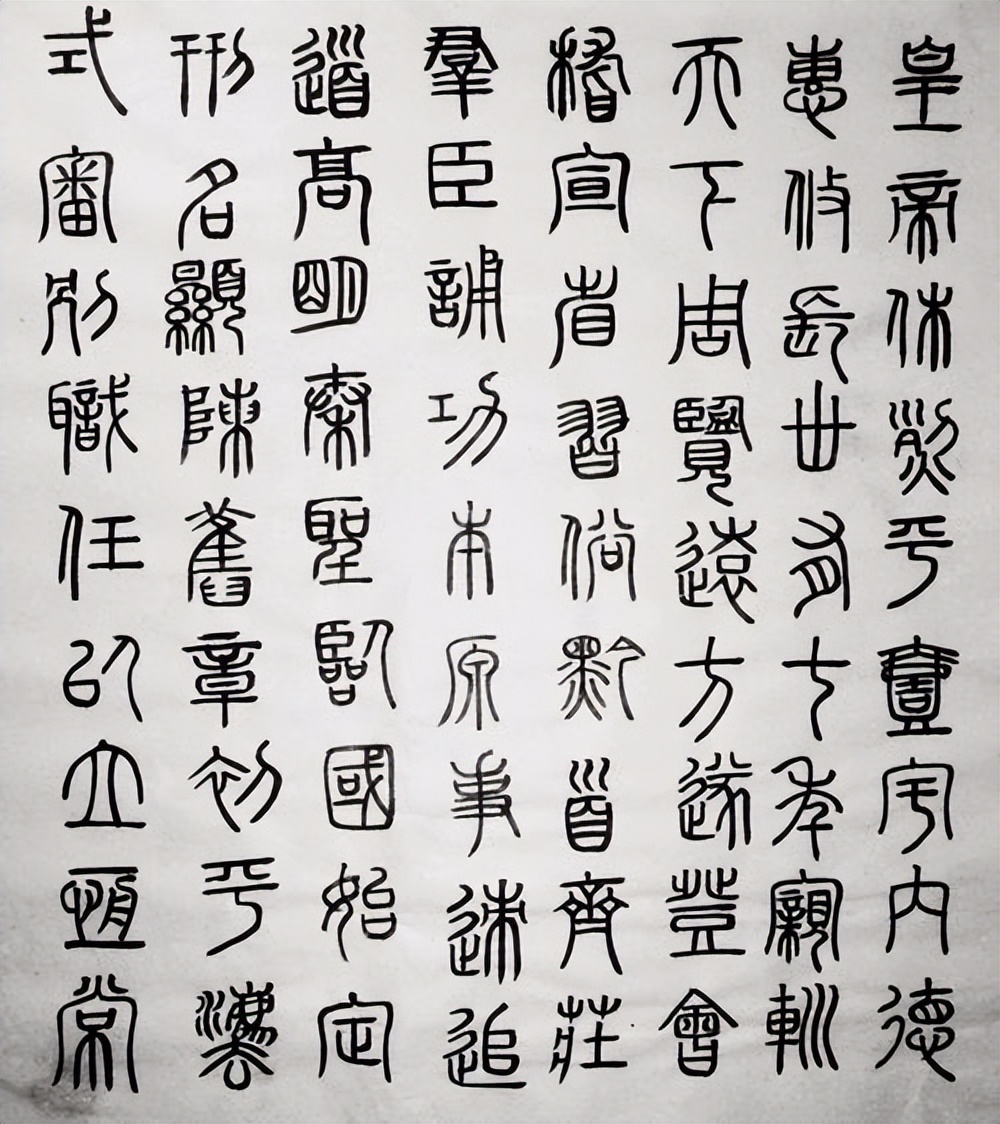 皇帝休烈平壹宇內德
惠攸長卅有七年寴巡
天下周覽遠方遂登會
稽宣省習俗黔首齊莊
羣臣誦功本原事迹追
道高明秦聖臨國始定
刑名顯陳舊章初平灋
式審別職任以立恆常